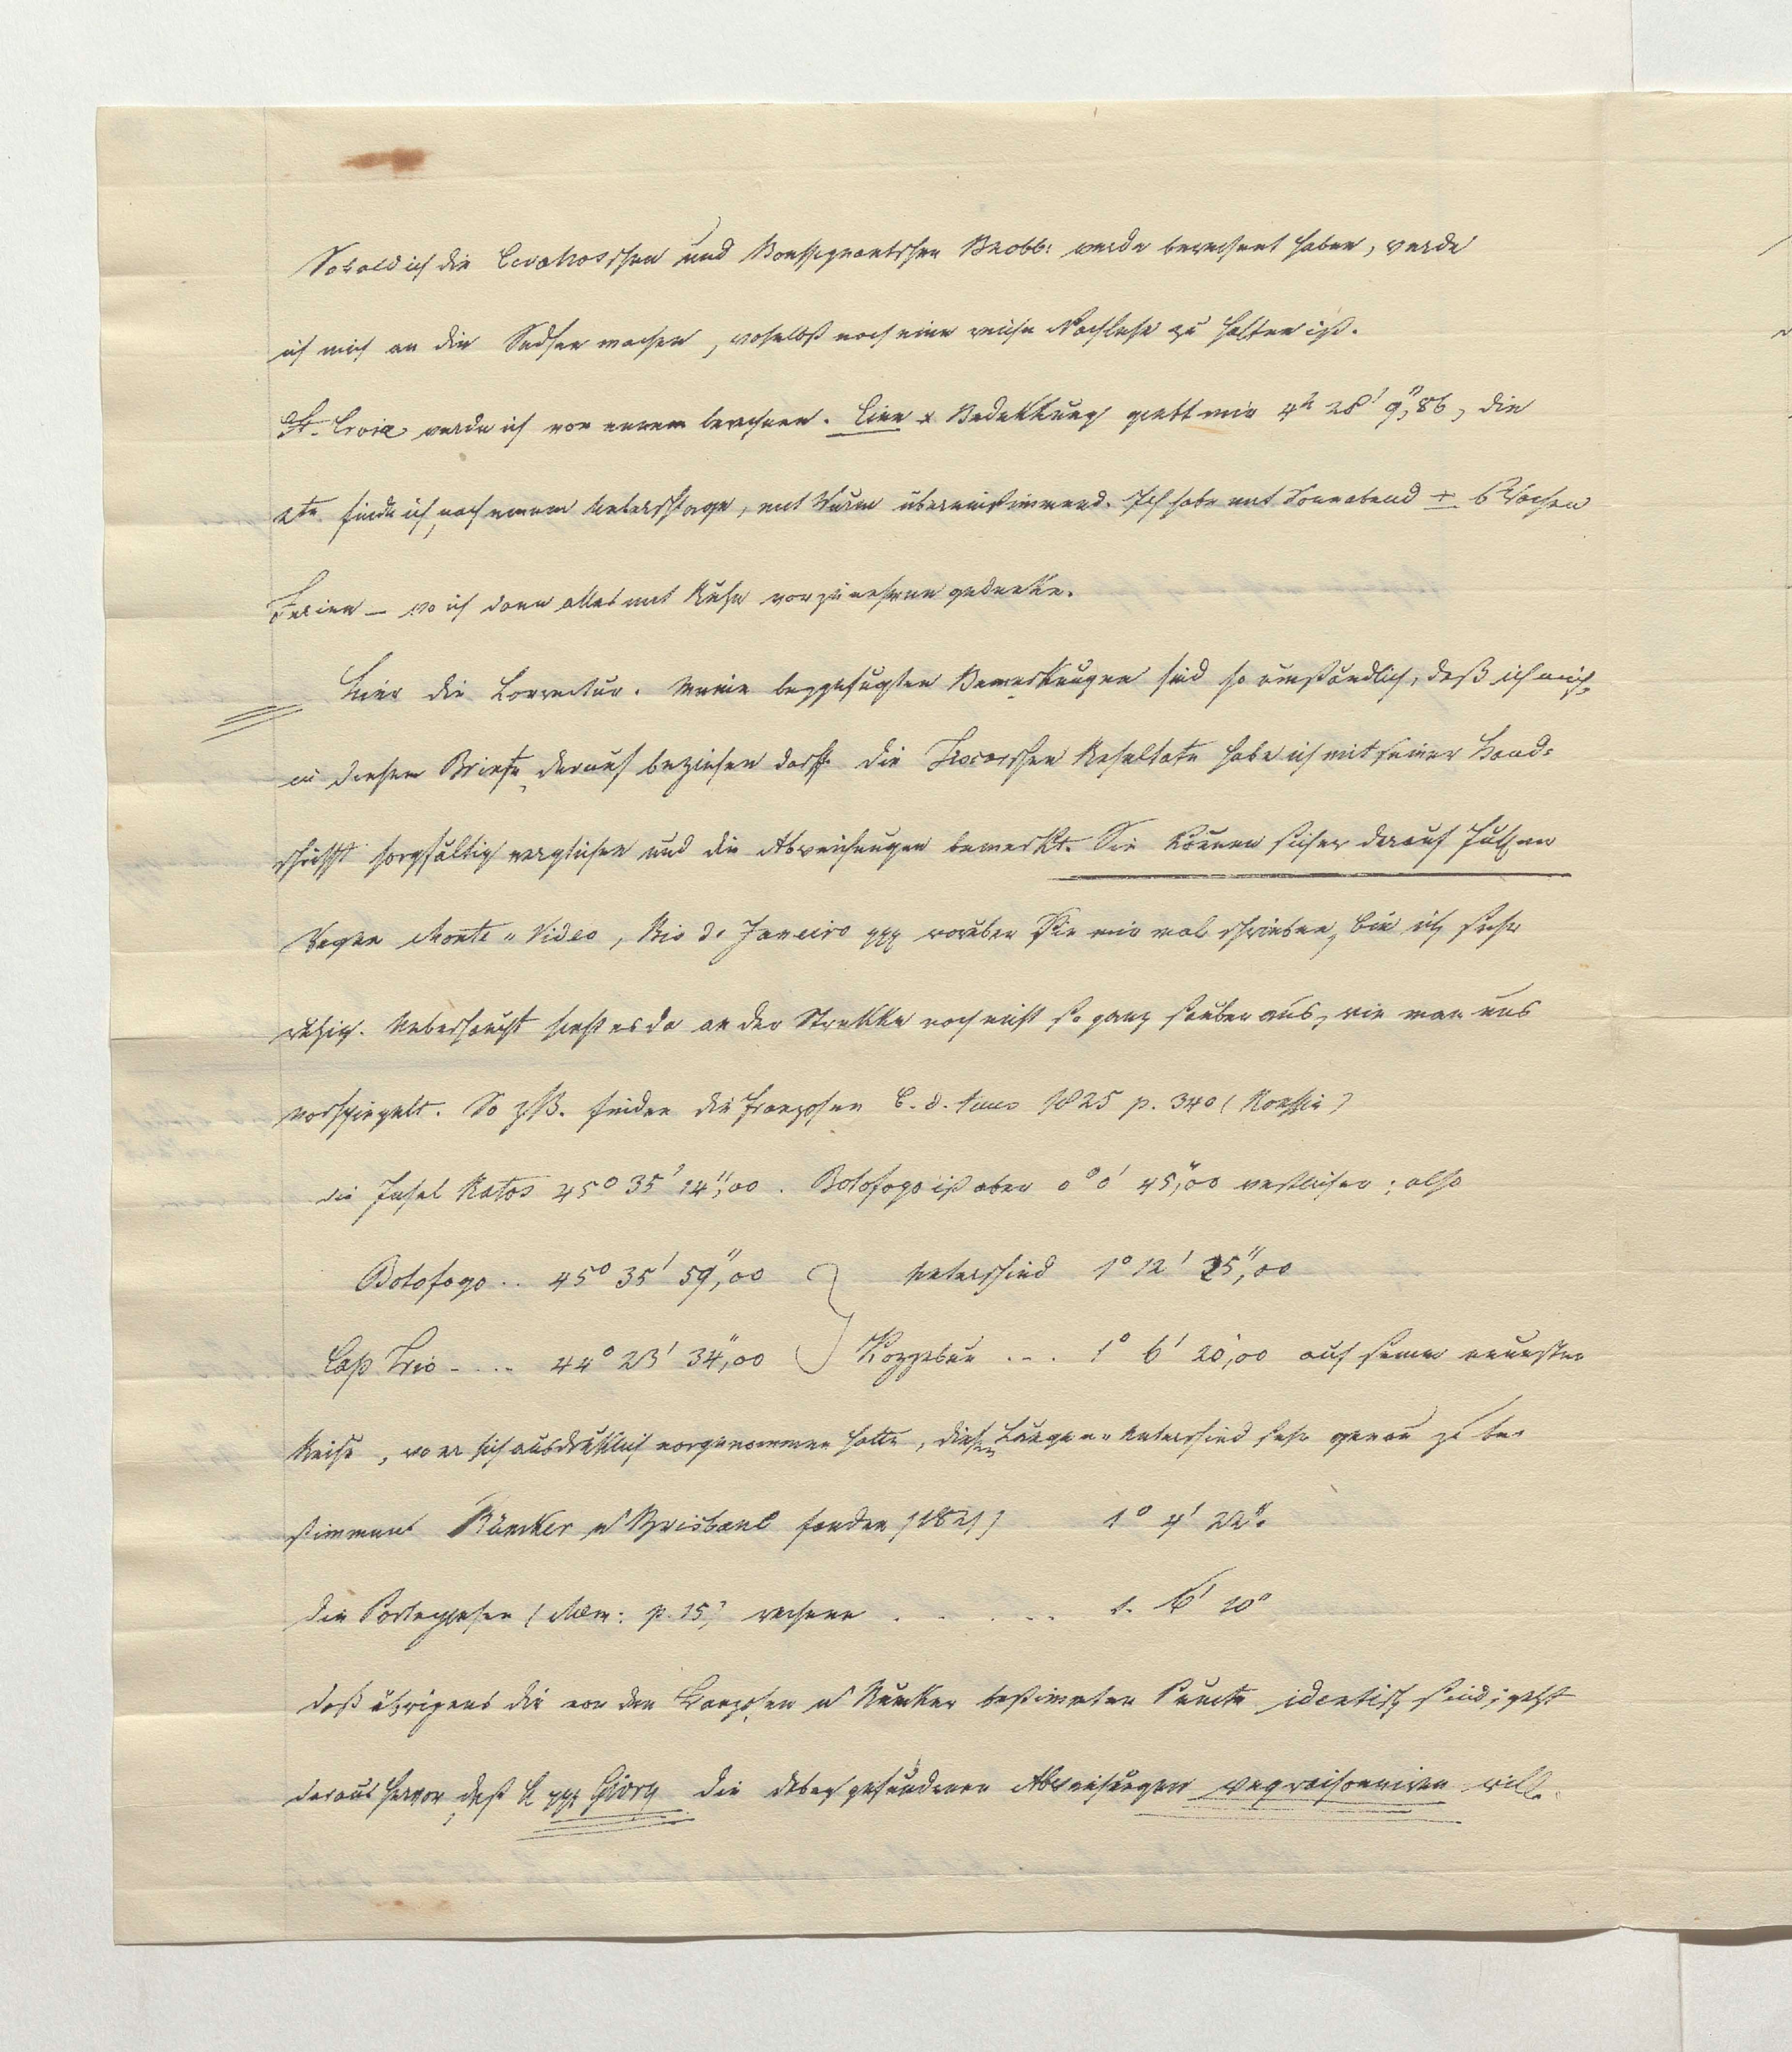 Sobald ich die Cevahosschen und Boussignaultschen Beobb: werde berechnet haben, werde
ich mich an die Südsee machen, woselbst noch eine reiche Nachlese zu halten ist.
St. Croix werde ich von neuem berechnen. Eine * Bedekkung giebt mir 4h 28' 9",86, die
2te finde ich, nach neuem Ueberschlage, mit Wurm übereinstimmend. Ich habe mit Sonnabend ± 6 Wochen
Ferien – wo ich dann alles mit Ruhe vorzunehmen gedenke.
Hier die Correctur. Meine beygefügten Bemerkungen sind so umständlich, daß ich mich
in diesem Briefe darauf beziehen darf. Die Ferrerschen Resultate habe ich mit seiner Hand-
schrifft sorgfältig verglichen und die Abweichungen bemerkt. Sie können sicher darauf fußen
Wegen Monte-Video, Rio de Janeiro ppp worüber Sie mir mal schrieben, bin ich sehr
ruhig. Ueberhaupt sieht es da an der Strekke noch nicht so ganz sauber aus, wie man uns
vorspiegelt. So zB. finden die Franzosen C. d. tems 1825 p. 340 (Roussin)
die Insel Ratos 45° 35' 14",00. Botofogo ist aber 0° 0' 45",00 westlicher; also
Botofogo .. 45° 35' 59",00 } Unterschied 1° 12' 25",00
Cap Frio .... 44° 23' 34",00 Kozzebue ... 1° 6' 20",00 auf seiner neuesten
Reise, wo er sich ausdrüklich vorgenommen hatte, diesen Längen-Unterschied sehr genau zu be-
stimmen. Rümker u Brisbane fanden (1821) 1° 4' 22".
Die Portugiesen (Mem: p. 15) rechnen . . . . . 1. 6' 10"
Daß übrigens die von den Franzosen u Rümker bestimmten Puncte identisch sind, geht
daraus hervor, daß H ppp Givry die dabey gefundenen Abweichungen wegraisonniren will.